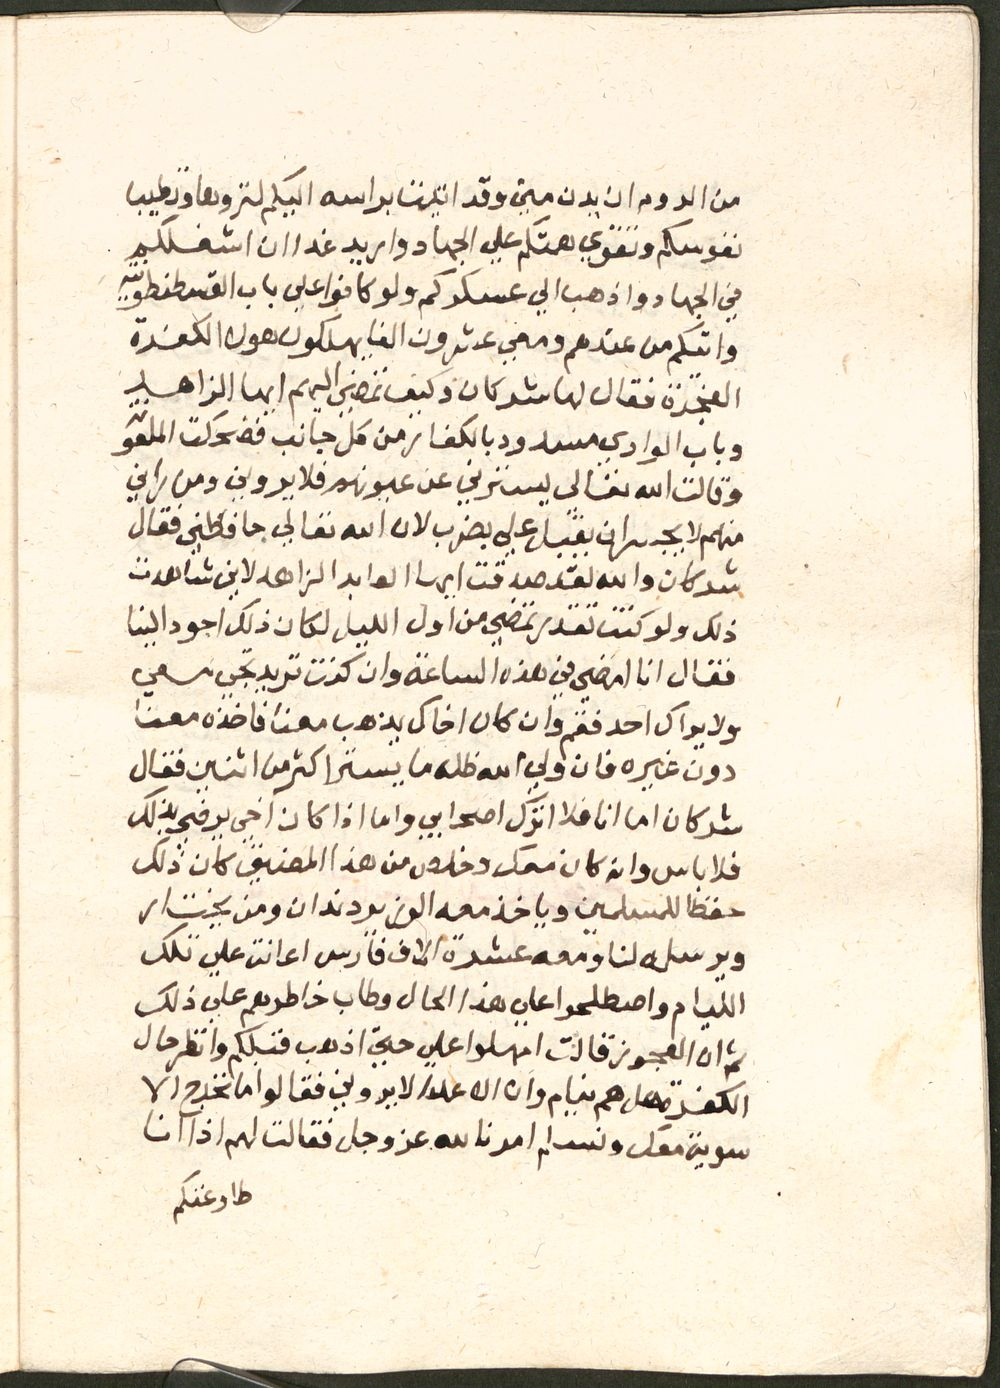 من الروم ان بدن ميتي وقد اتيت براسه اليكم لتروها وتطيب
نفوسكم وتقوي همتكم علي الجهاد واريد غدا ان اشغلكم
في الجهاد واذهب الي عسكركم ولو كانوا علي باب القسطنطونيه
واتيكم من عندهم ومعي عشرون الفا يهلكون هولا الكفرة
الفجرة فقال لها شركان وكيف تمضي اليهم ايها الزاهد
وباب الوادي مسدود بالكفار من كل جانب فضحكت الملعونه
وقالت الله تعالي يسترني عن عيونهم فلا يروني ومن راني
منهم لا يجسر ان يقبل علي بضرب لان الله تعالي حافظني فقال
شركان والله لقد صدقت ايها العابد الزاهد لاني شاهدت
ذلك ولو كنت تقدر تمضي من اول الليل لكان ذلك اجود الينا
فقال انا امضي في هذه الساعة وان كنت تريد تجي معي
ولا يراك احد فقم وان كان اخاك يذهب معنا فاخذه معنا
دون غيره فان ولي الله ظله ما يستر اكثر من اثنين فقال
شركان اما انا فلا اترك اصحابي واما اذا كان اخي يرضي بذلك
فلا باس وانه كان معك وخلص من هذا المضيق كان ذلك
حفظا للمسلمين وياخذ معه الوزير دندان ومن يختار
ويرسل لنا ومعه عشرة الاف فارس اعانت علي تلك
الليام واصطلحوا علي هذا الحال وطاب خاطرهم علي ذلك
ثم ان العجوز قالت امهلوا علي حتي اذهب قبلكم وانظر حال
الكفرة هل هم نيام وان الاعدا لا يروني فقالوا ما نخرج الا
سوية معك ونسلم امرنا لله عز وجل فقالت لهم اذا انا
طاوعتكم